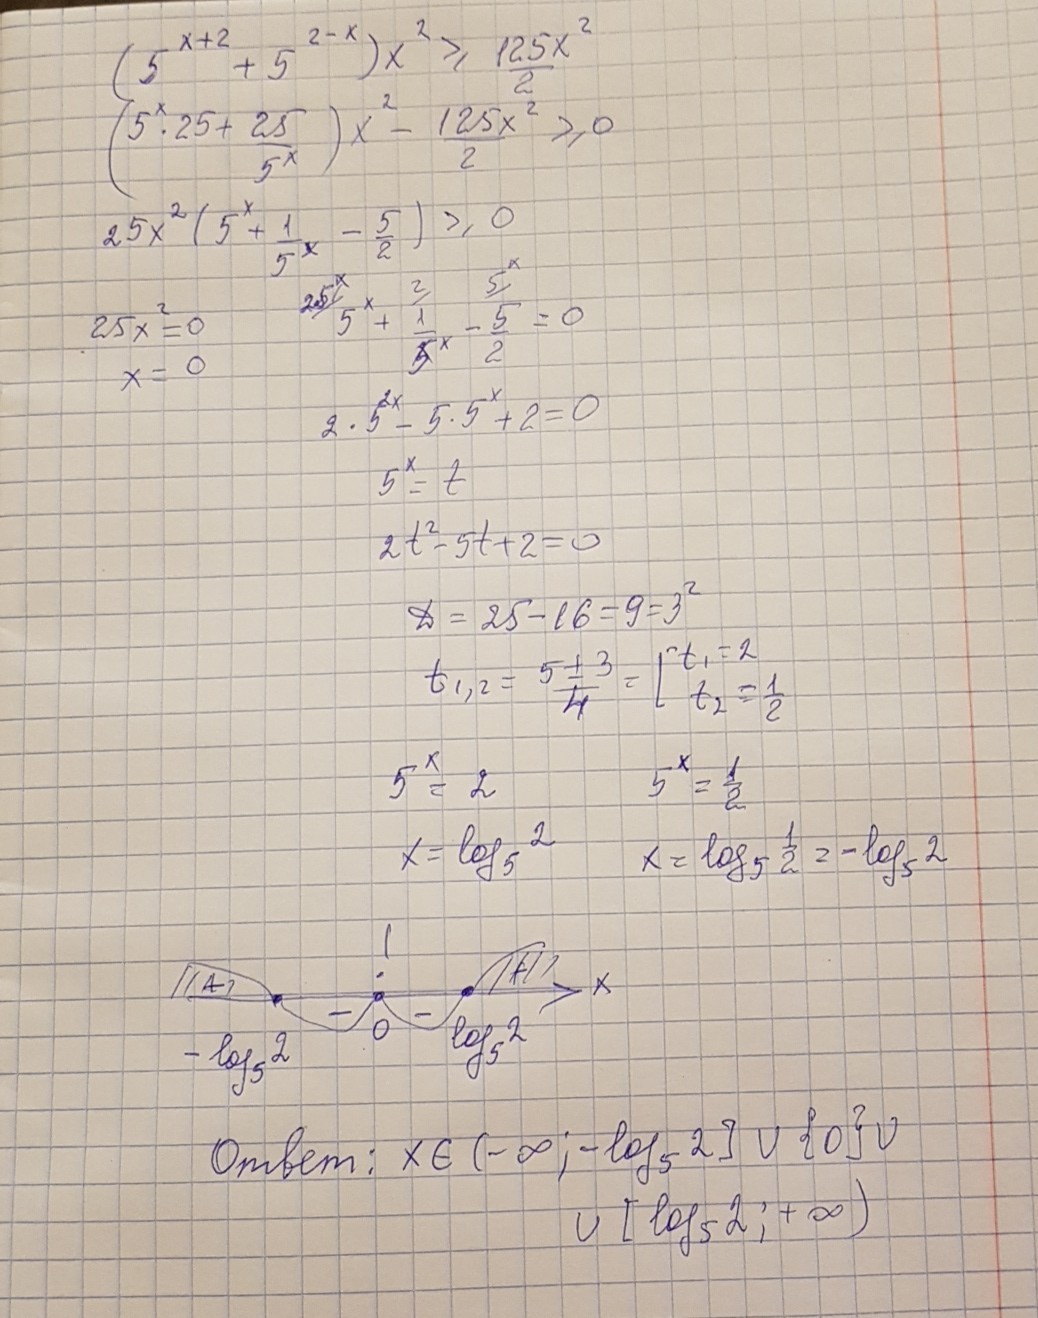 (5^{x+2} + 5^{2-x})x² ⩾ 125x²/2
(5^x·25 + 25/5^x)x² - 125x²/2 ⩾ 0
25x²(5^x + 1/5^x - 5/2) ⩾ 0
25x² = 0
x = 0
2 5^x
5^x + 1/5^x - 5/2 = 0
2·5^{2x} - 5·5^x + 2 = 0
5^x = t
2t² - 5t + 2 = 0
D = 25 - 16 = 9 = 3²
t₁,₂ = (5±3)/4 = [t₁ = 2
t₂ = 1/2
5^x = 2 5^x = 1/2
x = log₅2 x = log₅ 1/2 = -log₅2
+ - - + x
-log₅2 0 log₅2
Ответ: x∈(-∞; -log₅2] ∪ {0} ∪
∪ [log₅2; +∞)